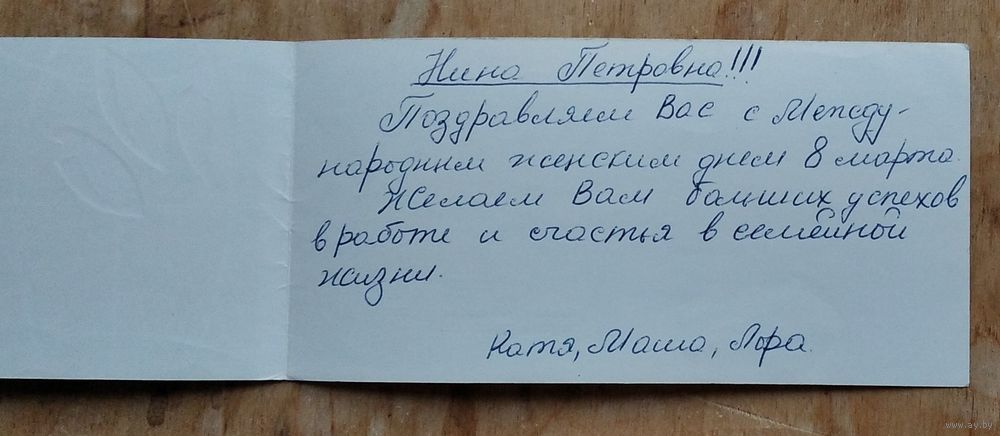 Нина Петровна!!!
Поздравляем Вас с Между-
народным женским днем 8 марта.
Желаем Вам больших успехов
в работе и счастья в семейной
жизни.
Катя, Маша, Лора.
www.ay.by